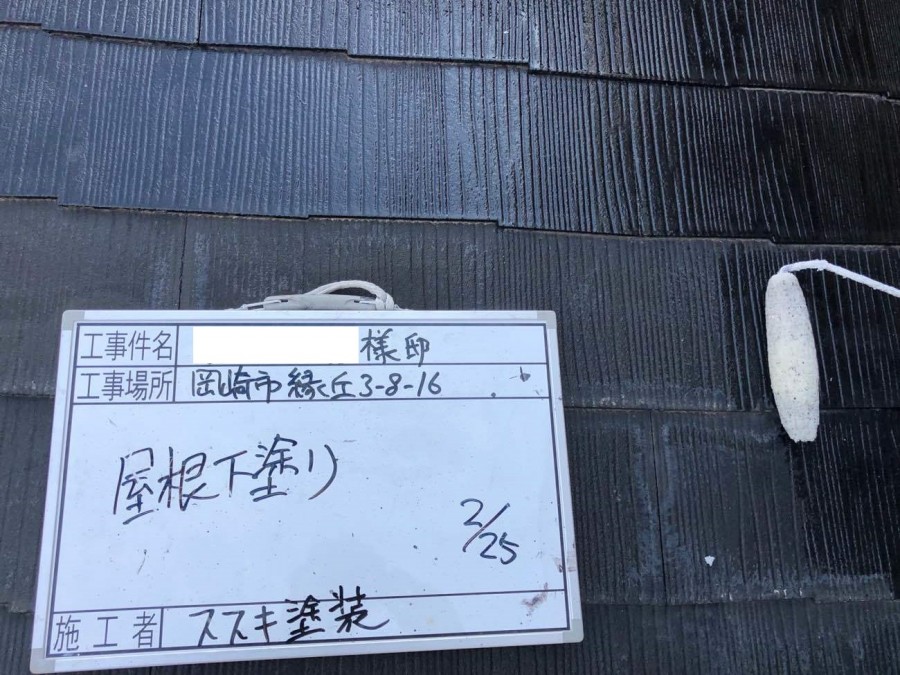 工事件名 様邸
工事場所 岡崎市緑丘3-8-16
屋根下塗り
2/25
施工者 スズキ塗装